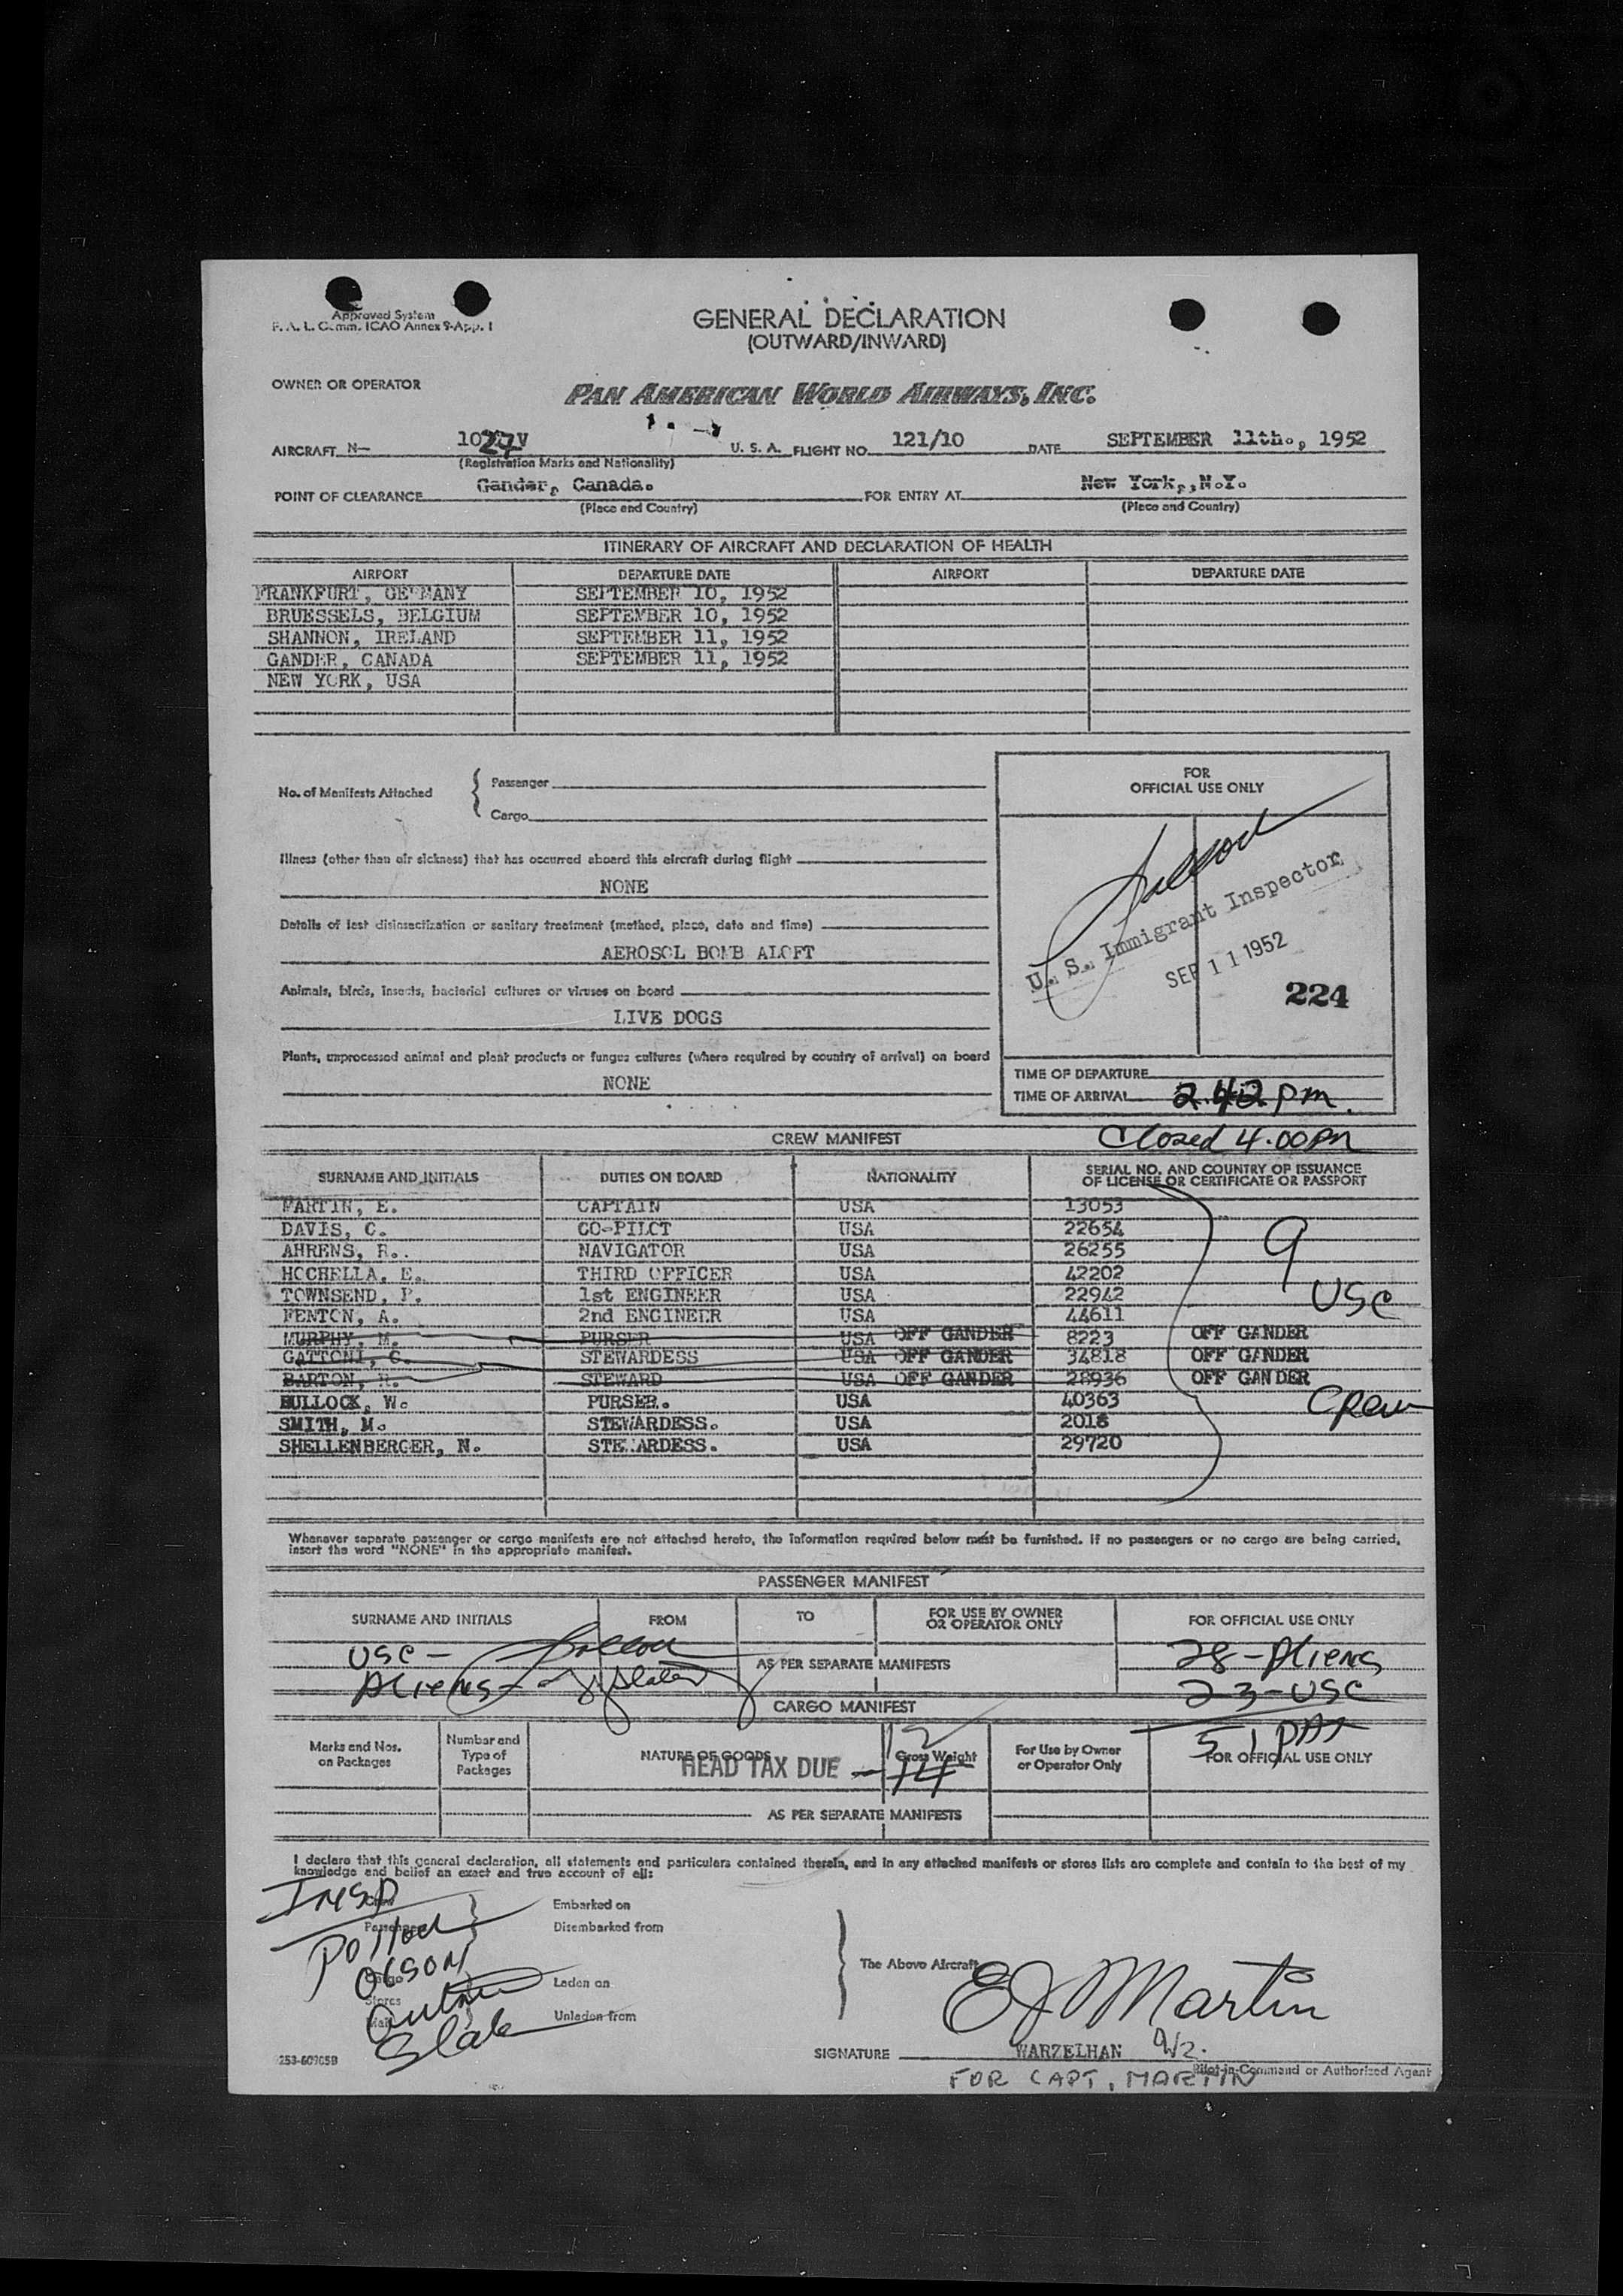 Approved System
F. A. L. Comm. ICAO Annex 9-App. I
GENERAL DECLARATION
(OUTWARD/INWARD)
OWNER OR OPERATOR
PAN AMERICAN WORLD AIRWAYS, INC.
AIRCRAFT N— 1027V U. S. A. FLIGHT NO. 121/10 DATE SEPTEMBER 11th., 1952
(Registration Marks and Nationality)
POINT OF CLEARANCE Gander, Canada. FOR ENTRY AT New York,,N.Y.
(Place and Country) (Place and Country)
ITINERARY OF AIRCRAFT AND DECLARATION OF HEALTH
AIRPORT DEPARTURE DATE AIRPORT DEPARTURE DATE
FRANKFURT, GERMANY SEPTEMBER 10, 1952
BRUESSELS, BELGIUM SEPTEMBER 10, 1952
SHANNON, IRELAND SEPTEMBER 11, 1952
GANDER, CANADA SEPTEMBER 11, 1952
NEW YORK, USA
No. of Manifests Attached
Passenger
Cargo
FOR
OFFICIAL USE ONLY
Illness (other than air sickness) that has occurred aboard this aircraft during flight
NONE
Details of last disinsectization or sanitary treatment (method, place, date and time)
AEROSOL BOMB ALOFT
Animals, birds, insects, bacterial cultures or viruses on board
LIVE DOGS
Plants, unprocessed animal and plant products or fungus cultures (where required by country of arrival) on board
NONE
U. S. Immigrant Inspector
SEP 11 1952
224
TIME OF DEPARTURE
TIME OF ARRIVAL 2.42 pm.
Closed 4.00 PM
CREW MANIFEST
SURNAME AND INITIALS DUTIES ON BOARD NATIONALITY SERIAL NO. AND COUNTRY OF ISSUANCE
OF LICENSE OR CERTIFICATE OR PASSPORT
MARTIN, E. CAPTAIN USA 13053
DAVIS, C. CO-PILOT USA 22654
AHRENS, R.. NAVIGATOR USA 26255
HOCHELLA, E. THIRD OFFICER USA 42202
TOWNSEND, P. 1st ENGINEER USA 22942
FENTON, A. 2nd ENGINEER USA 44611
MURPHY, M. PURSER USA OFF GANDER 8223 OFF GANDER
GATTONI, C. STEWARDESS USA OFF GANDER 34818 OFF GANDER
BARTON, R. STEWARD USA OFF GANDER 28936 OFF GANDER
BULLOCK, W. PURSER. USA 40363
SMITH, M. STEWARDESS. USA 2018
SHELLENBERGER, N. STEWARDESS. USA 29720
9
USC
Crew
Whenever separate passenger or cargo manifests are not attached hereto, the information required below must be furnished. If no passengers or no cargo are being carried,
insert the word "NONE" in the appropriate manifest.
PASSENGER MANIFEST
SURNAME AND INITIALS FROM TO FOR USE BY OWNER
OR OPERATOR ONLY FOR OFFICIAL USE ONLY
USC — 28 - Aliens
AS PER SEPARATE MANIFESTS
Aliens - Slater 23 - USC
CARGO MANIFEST
51 PAS
Marks and Nos.
on Packages
Number and
Type of
Packages
NATURE OF GOODS
Gross Weight
For Use by Owner
or Operator Only
FOR OFFICIAL USE ONLY
HEAD TAX DUE — 14
12
AS PER SEPARATE MANIFESTS
I declare that this general declaration, all statements and particulars contained therein, and in any attached manifests or stores lists are complete and contain to the best of my
knowledge and belief an exact and true account of all:
INSP
Crew Embarked on
Passengers Disembarked from
OLSON
Cargo Laden on
Stores
Mail Unladen from
Slater
The Above Aircraft
EJ Martin
SIGNATURE WARZELHAN
Pilot-in-Command or Authorized Agent
FOR CAPT. MARTIN
253-60965B